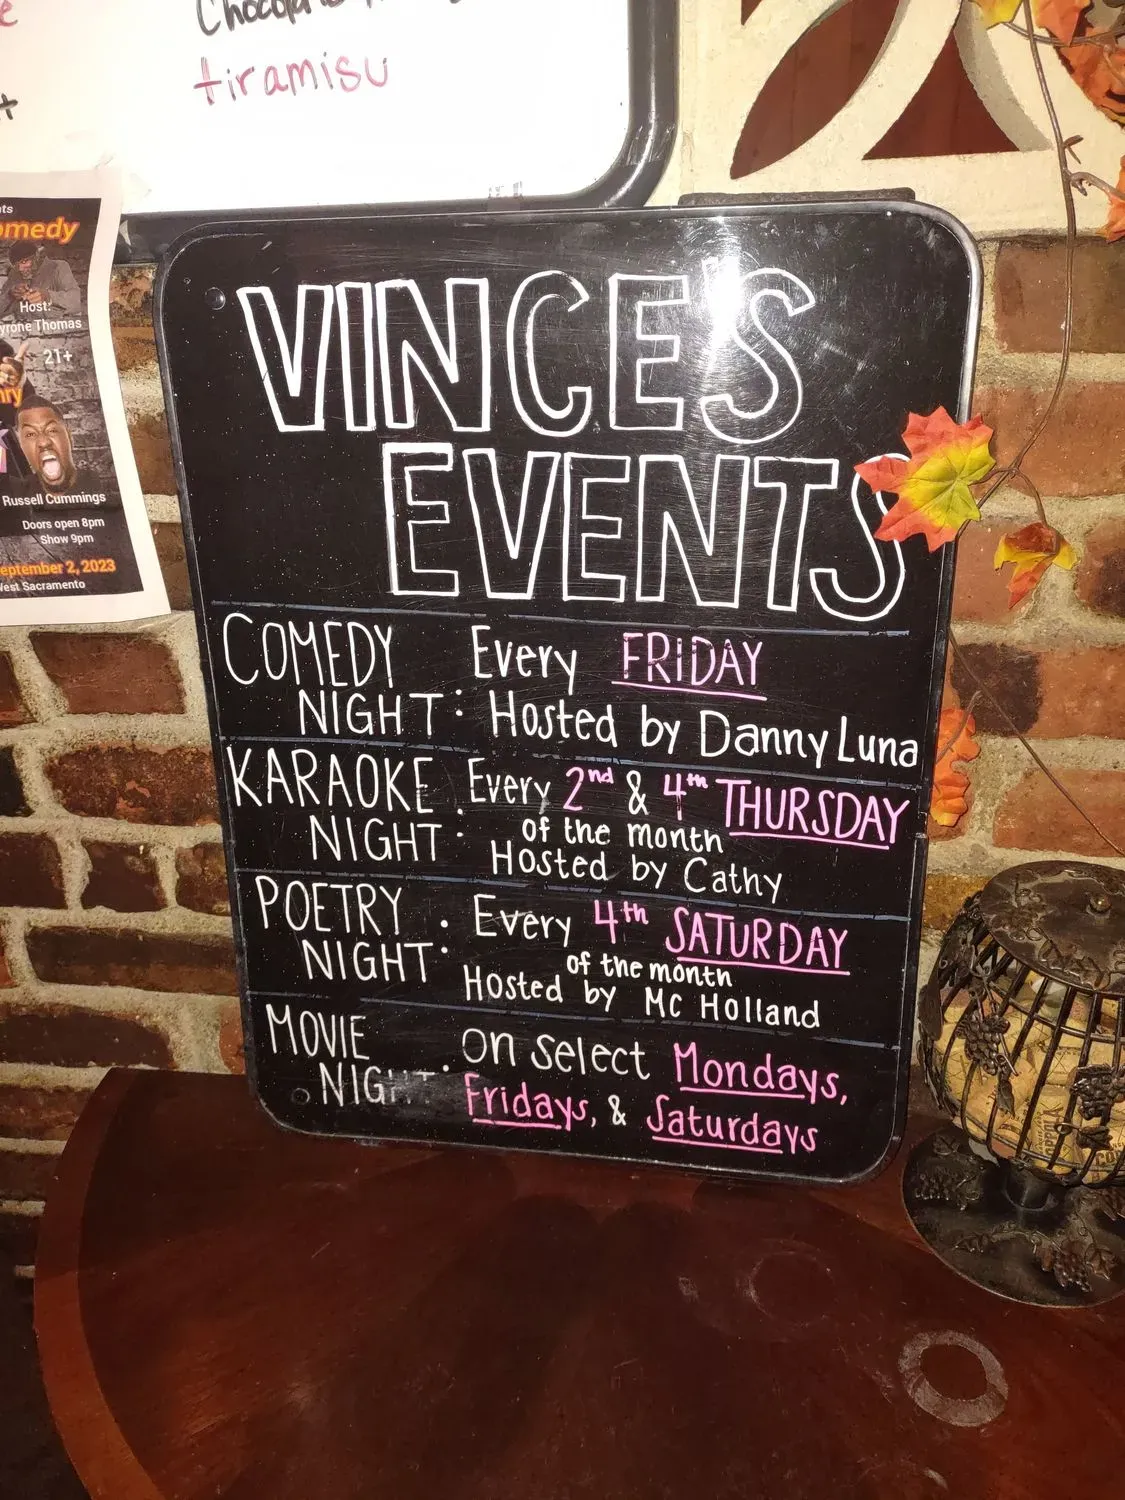 tiramisu
Host:
21+
Russell Cummings
Doors open 8pm
Show 9pm
2, 2023
West Sacramento
VINCE'S
EVENTS
COMEDY NIGHT: Every FRIDAY
Hosted by Danny Luna
KARAOKE NIGHT: Every 2nd & 4th THURSDAY
of the month
Hosted by Cathy
POETRY NIGHT: Every 4th SATURDAY
of the month
Hosted by Mc Holland
MOVIE NIGHT: on select Mondays,
Fridays, & Saturdays